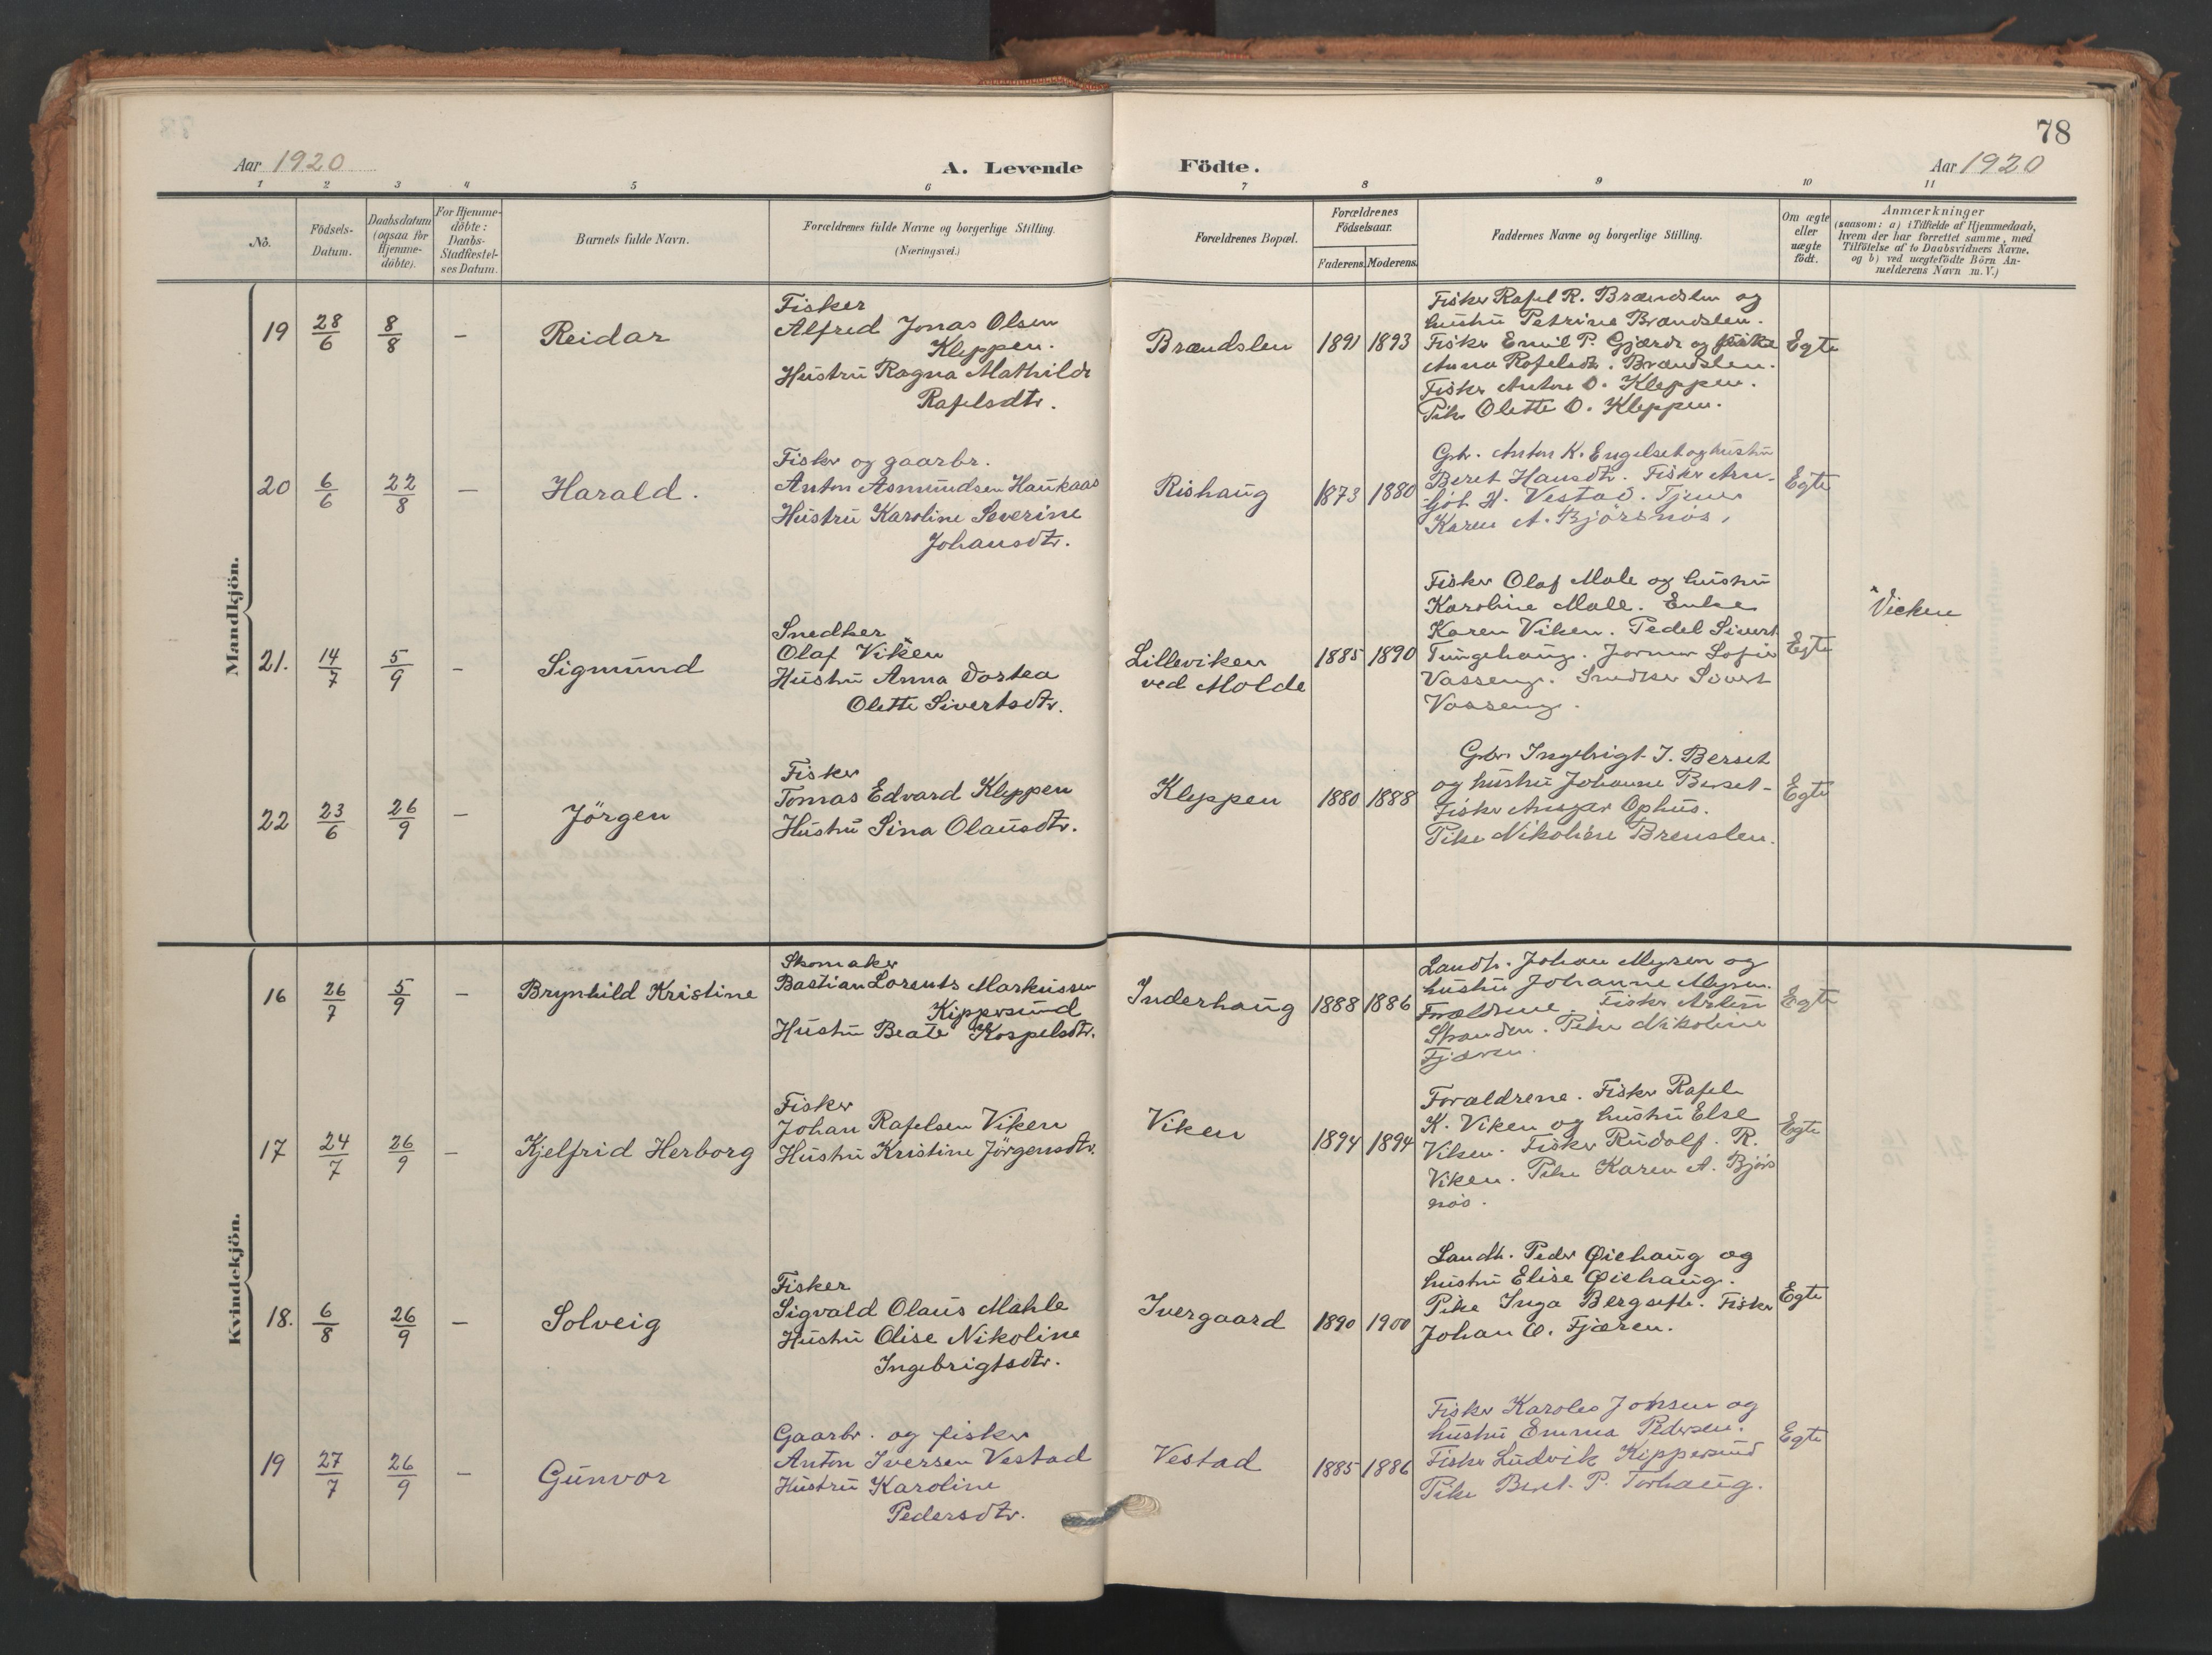 78
Aar 1920
A. Levende Födte.
Aar 1920
1 2 3 4 5 6 7 8 9 10 11
No.
Födsels-
Datum.
Daabsdatum
(ogsaa for
Hjemme-
döbte).
For Hjemme-
döbte:
Daabs-
Stadfæstel-
ses Datum.
Barnets fulde Navn.
Forældrenes fulde Navne og borgerlige Stilling.
(Næringsvei.)
Forældrenes Bopæl.
Forældrenes
Födselsaar.
Faderens. Moderens.
Faddernes Navne og borgerlige Stilling.
Om ægte
eller
uægte
födt.
Anmærkninger
(saasom: a) i Tilfælde af Hjemmedaab,
hvem der har forrettet samme, med
Tilföielse af to Daabsvidners Navne,
og b) ved uægtefödte Börn An-
melderens Navn m. V.)
Mandkjön.
19 28/6 8/8 – Reidar
Fisker
Alfred Jonas Olsen
Kleppen.
Hustru Ragna Mathilde
Rafelsdtr.
Brændslen 1891 1893
Fisker Rafel R. Brændslen og
hustru Petrine Brændslen.
Fisker Emil P. Gjærde og pike
Anna Rafelsdtr. Brændslen.
Fisker Anton O. Kleppen.
Pike Olette O. Kleppen.
Egte
20 6/6 22/8 – Harald.
Fisker og gaarbr.
Anton Asmundsen Haukaas
Hustru Karoline Severine
Johansdtr.
Rishaug 1873 1880
Gbr. Anton K. Engelset og hustru
Beret Hansdtr. Fisker Arn-
ljot H. Vestad. Tjener
Karen A. Bjørsnös.
Egte
21. 14/7 5/9 – Sigmund
Snedker
Olaf Viken
Hustru Anna Dortea
Olette Sivertsdtr.
Lilleviken
ved Molde
1885 1890
Fisker Olaf Male og hustru
Karoline Male. Enke
Karen Viken. Pedel Sivert
Tungehaug. Jormor Sofie
Vasseng. Snedker Sivert
Vasseng.
Egte
Vicken
22 23/6 26/9 – Jörgen
Fisker
Tomas Edvard Kleppen
Hustru Sina Olausdtr.
Kleppen 1880 1888
Gbr. Ingebrigt J. Berset
og hustru Johanne Berset-
Fisker Ansgar Ophus.
Pike Nikoline Brenslen.
Egte
Kvindekjön.
16 26/7 5/9 – Brynhild Kristine
Skomaker
Bastian Lorents Markussen
Kippersund
Hustru Beate Kospelsdtr.
Inderhaug 1888 1886
Landh. Johan Myren og
hustru Johanne Myren.
Forældrene. Fisker
Stranden. Pike Nikoline
Fjæren.
Egte
17 24/7 26/9 – Kjelfrid Herborg
Fisker
Johan Rafelsen Viken
Hustru Kristine Jörgensdtr.
Viken 1894 1894
Forældrene. Fisker Rafel
K. Viken og hustru Else
Viken. Fisker Rudolf. R.
Viken. Pike Karen A. Bjørs
nös.
Egte
18. 6/8 26/9 – Solveig
Fisker
Sigvald Olaus Mahle
Hustru Olise Nikoline
Ingebrigtsdtr.
Ivergaard 1890 1900
Landh. Peder Øiehaug og
hustru Elise Øiehaug.
Pike Inga Bergsetle. Fisker
Johan O. Fjæren.
Egte
19 27/7 26/9 – Gunvor
Gaarbr. og fisker
Anton Iversen Vestad
Hustru Karoline
Pedersdtr.
Vestad 1885 1886
Fisker Karoles Johsen og
hustru Emma Pedersen.
Fisker Ludvik Kippersund
Pike Beret P. Torhaug.
Egte